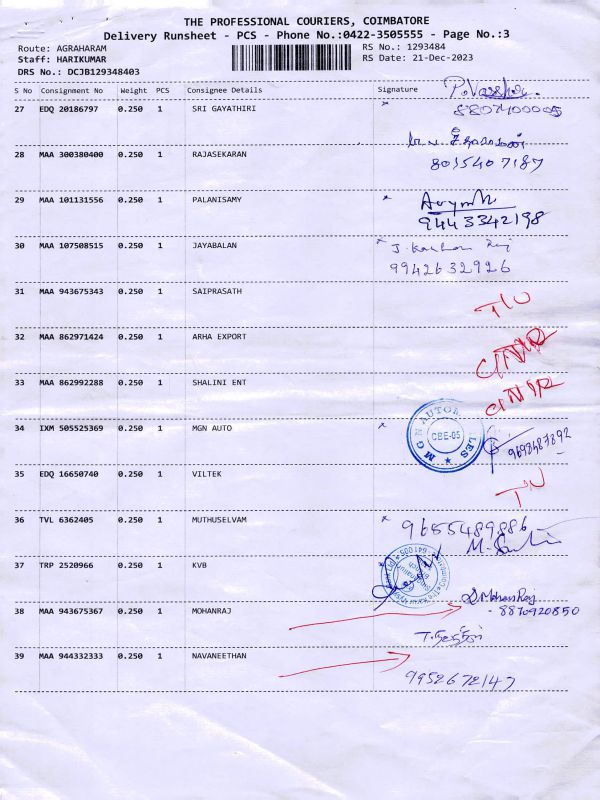 THE PROFESSIONAL COURIERS, COIMBATORE
Delivery Runsheet - PCS - Phone No.:0422-3505555 - Page No.:3
Route: AGRAHARAM RS No.: 1293484
Staff: HARIKUMAR RS Date: 21-Dec-2023
DRS No.: DCJB129348403
S No Consignment No Weight PCS Consignee Details Signature
27 EDQ 20186797 0.250 1 SRI GAYATHIRI
28 MAA 300380400 0.250 1 RAJASEKARAN
8015407187
29 MAA 101131556 0.250 1 PALANISAMY
9443342198
30 MAA 107508515 0.250 1 JAYABALAN
9942632926
31 MAA 943675343 0.250 1 SAIPRASATH
32 MAA 862971424 0.250 1 ARHA EXPORT
33 MAA 862992288 0.250 1 SHALINI ENT
34 IXM 505525369 0.250 1 MGN AUTO
CBE-05
9698487392
35 EDQ 16650740 0.250 1 VILTEK
36 TVL 6362405 0.250 1 MUTHUSELVAM
9655489886
37 TRP 2520966 0.250 1 KVB
38 MAA 943675367 0.250 1 MOHANRAJ
S. MohanRaj
- 8870920850
39 MAA 944332333 0.250 1 NAVANEETHAN
9952672147